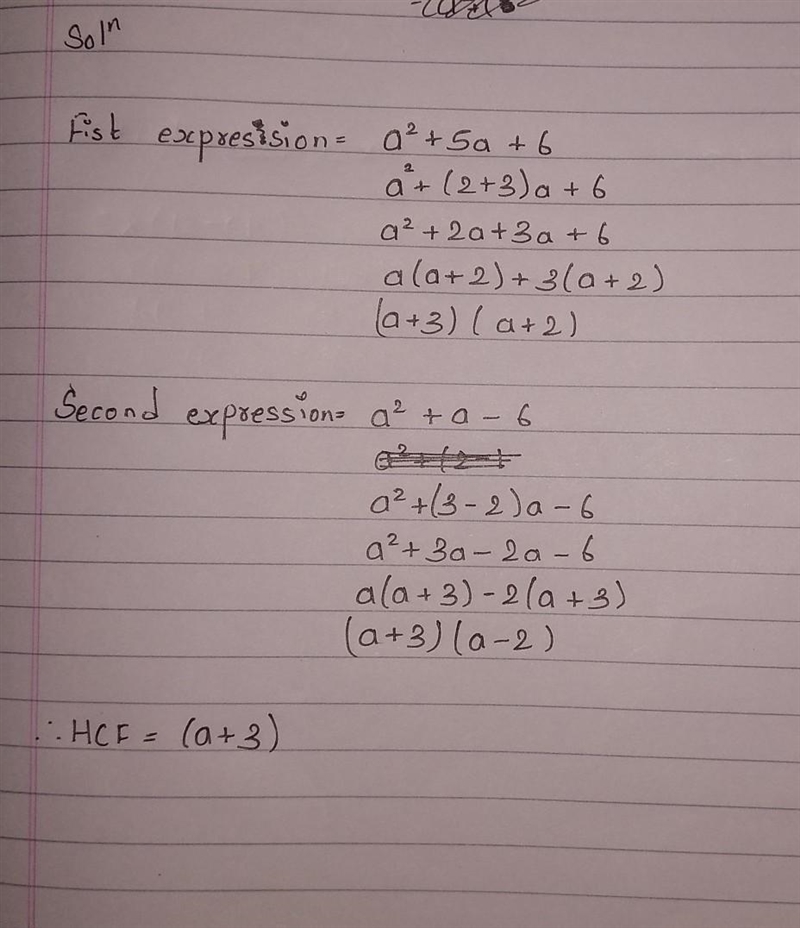 Solⁿ
Fist expresision = a² + 5a + 6
a² + (2+3)a + 6
a² + 2a + 3a + 6
a(a+2) + 3(a+2)
(a+3) (a+2)
Second expression = a² + a - 6
a² + (3-2)a - 6
a² + 3a - 2a - 6
a(a+3) - 2(a+3)
(a+3) (a-2)
∴ HCF = (a+3)